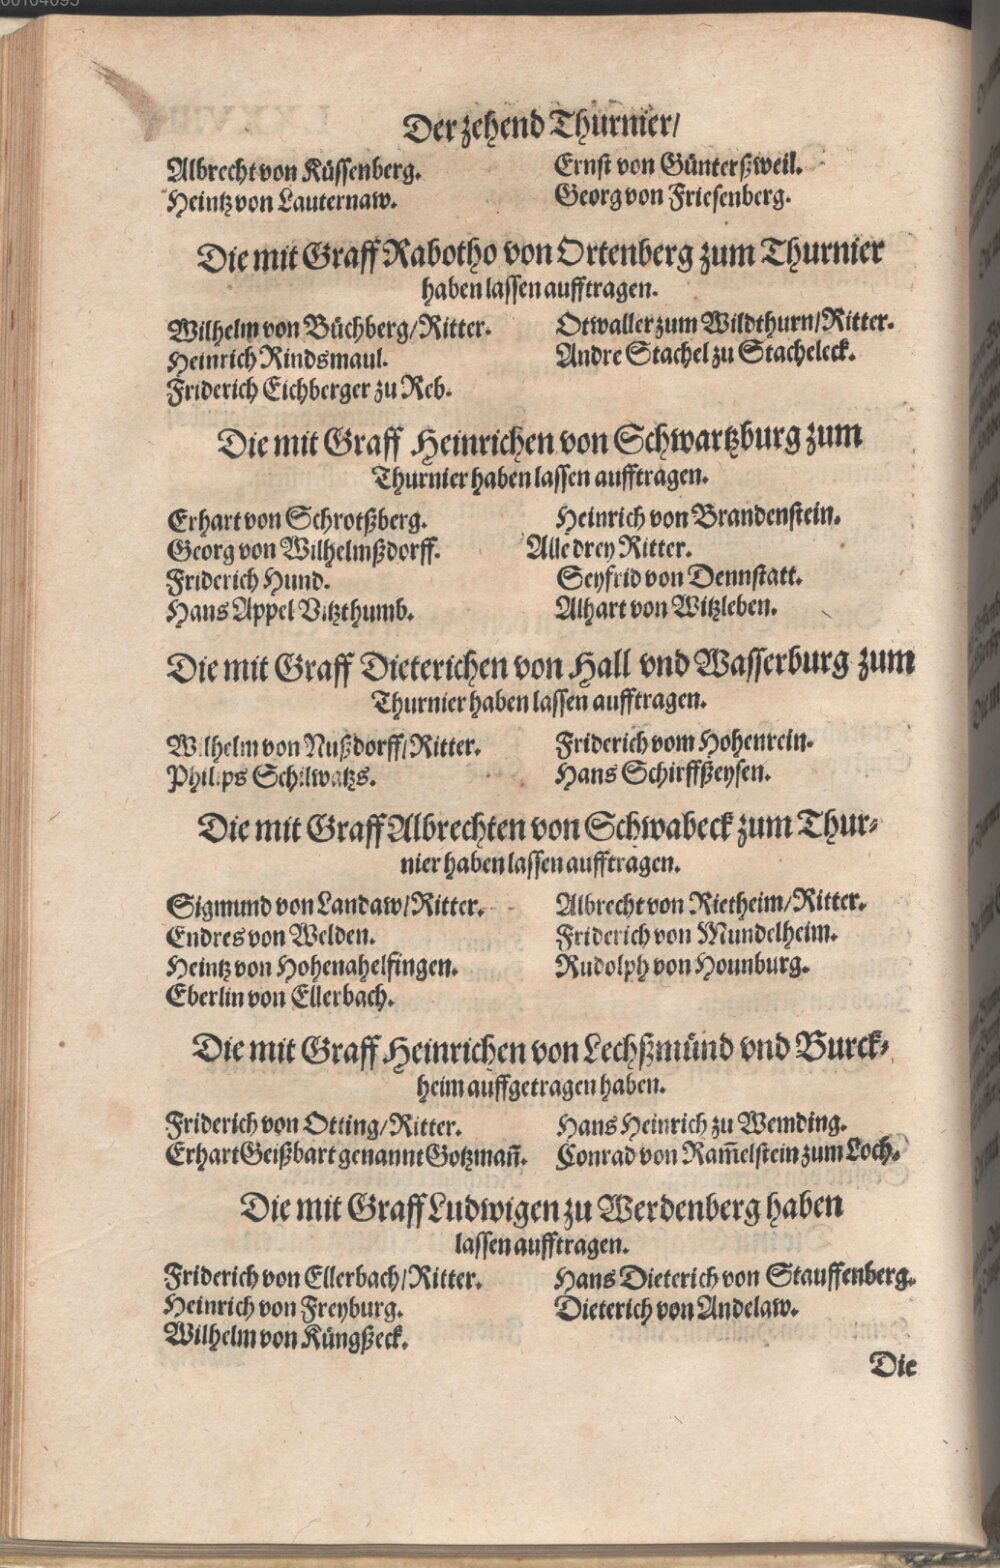 Der zehend Thurnier/
Albrecht von Küssenberg.
Heintz von Lauternaw.
Ernst von Günterßweil.
Georg von Friesenberg.
Die mit Graff Rabotho von Ortenberg zum Thurnier
haben lassen aufftragen.
Wilhelm von Büchberg/Ritter.
Heinrich Rindsmaul.
Friderich Eichberger zu Reb.
Otwaller zum Wildthurn/Ritter.
Andre Stachel zu Stacheleck.
Die mit Graff Heinrichen von Schwartzburg zum
Thurnier haben lassen aufftragen.
Erhart von Schrotßberg.
Georg von Wilhelmßdorff.
Friderich Hund.
Hans Appel Vitzthumb.
Heinrich von Brandenstein.
Alle drey Ritter.
Seyfrid von Dennstatt.
Alhart von Witzleben.
Die mit Graff Dieterichen von Hall vnd Wasserburg zum
Thurnier haben lassen aufftragen.
Wilhelm von Nußdorff/Ritter.
Philips Schilwatzs.
Friderich vom Hohenrein.
Hans Schirffßeysen.
Die mit Graff Albrechten von Schwabeck zum Thur-
nier haben lassen aufftragen.
Sigmund von Landaw/Ritter.
Endres von Welden.
Heintz von Hohenahelfingen.
Eberlin von Ellerbach.
Albrecht von Rietheim/Ritter.
Friderich von Mundelheim.
Rudolph von Hounburg.
Die mit Graff Heinrichen von Lechßmünd vnd Burck-
heim auffgetragen haben.
Friderich von Otting/Ritter.
Erhart Geißbart genannt Gotzmañ.
Hans Heinrich zu Wemding.
Conrad von Ram̃elstein zum Loch.
Die mit Graff Ludwigen zu Werdenberg haben
lassen aufftragen.
Friderich von Ellerbach/Ritter.
Heinrich von Freyburg.
Wilhelm von Küngßeck.
Hans Dieterich von Stauffenberg.
Dieterich von Andelaw.
Die